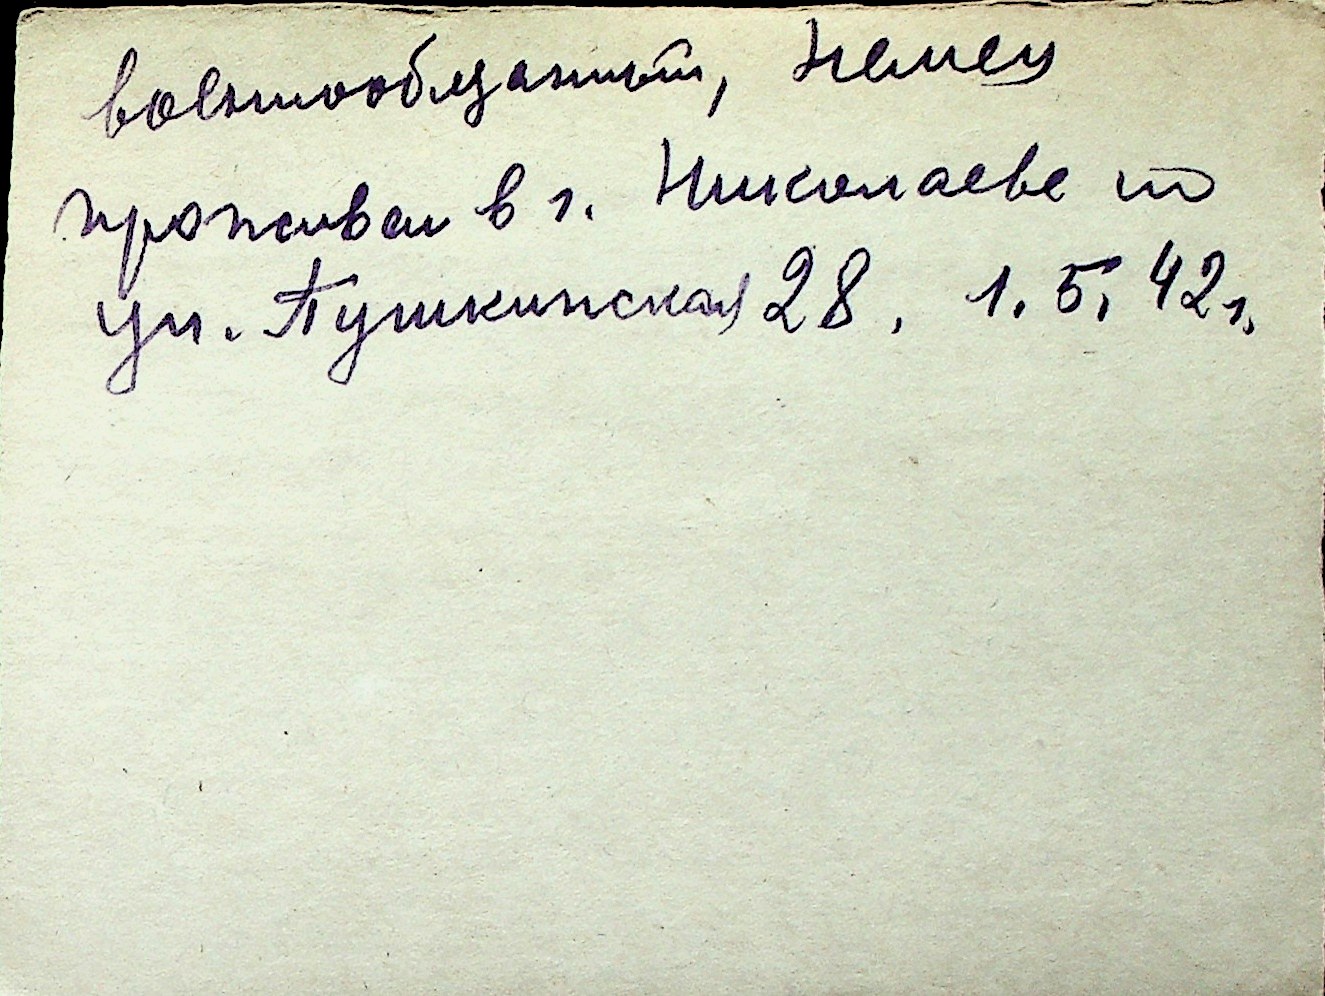 военнообязанный, немец
проживал в г. Николаеве по
ул. Пушкинская 28. 1.5.42г.